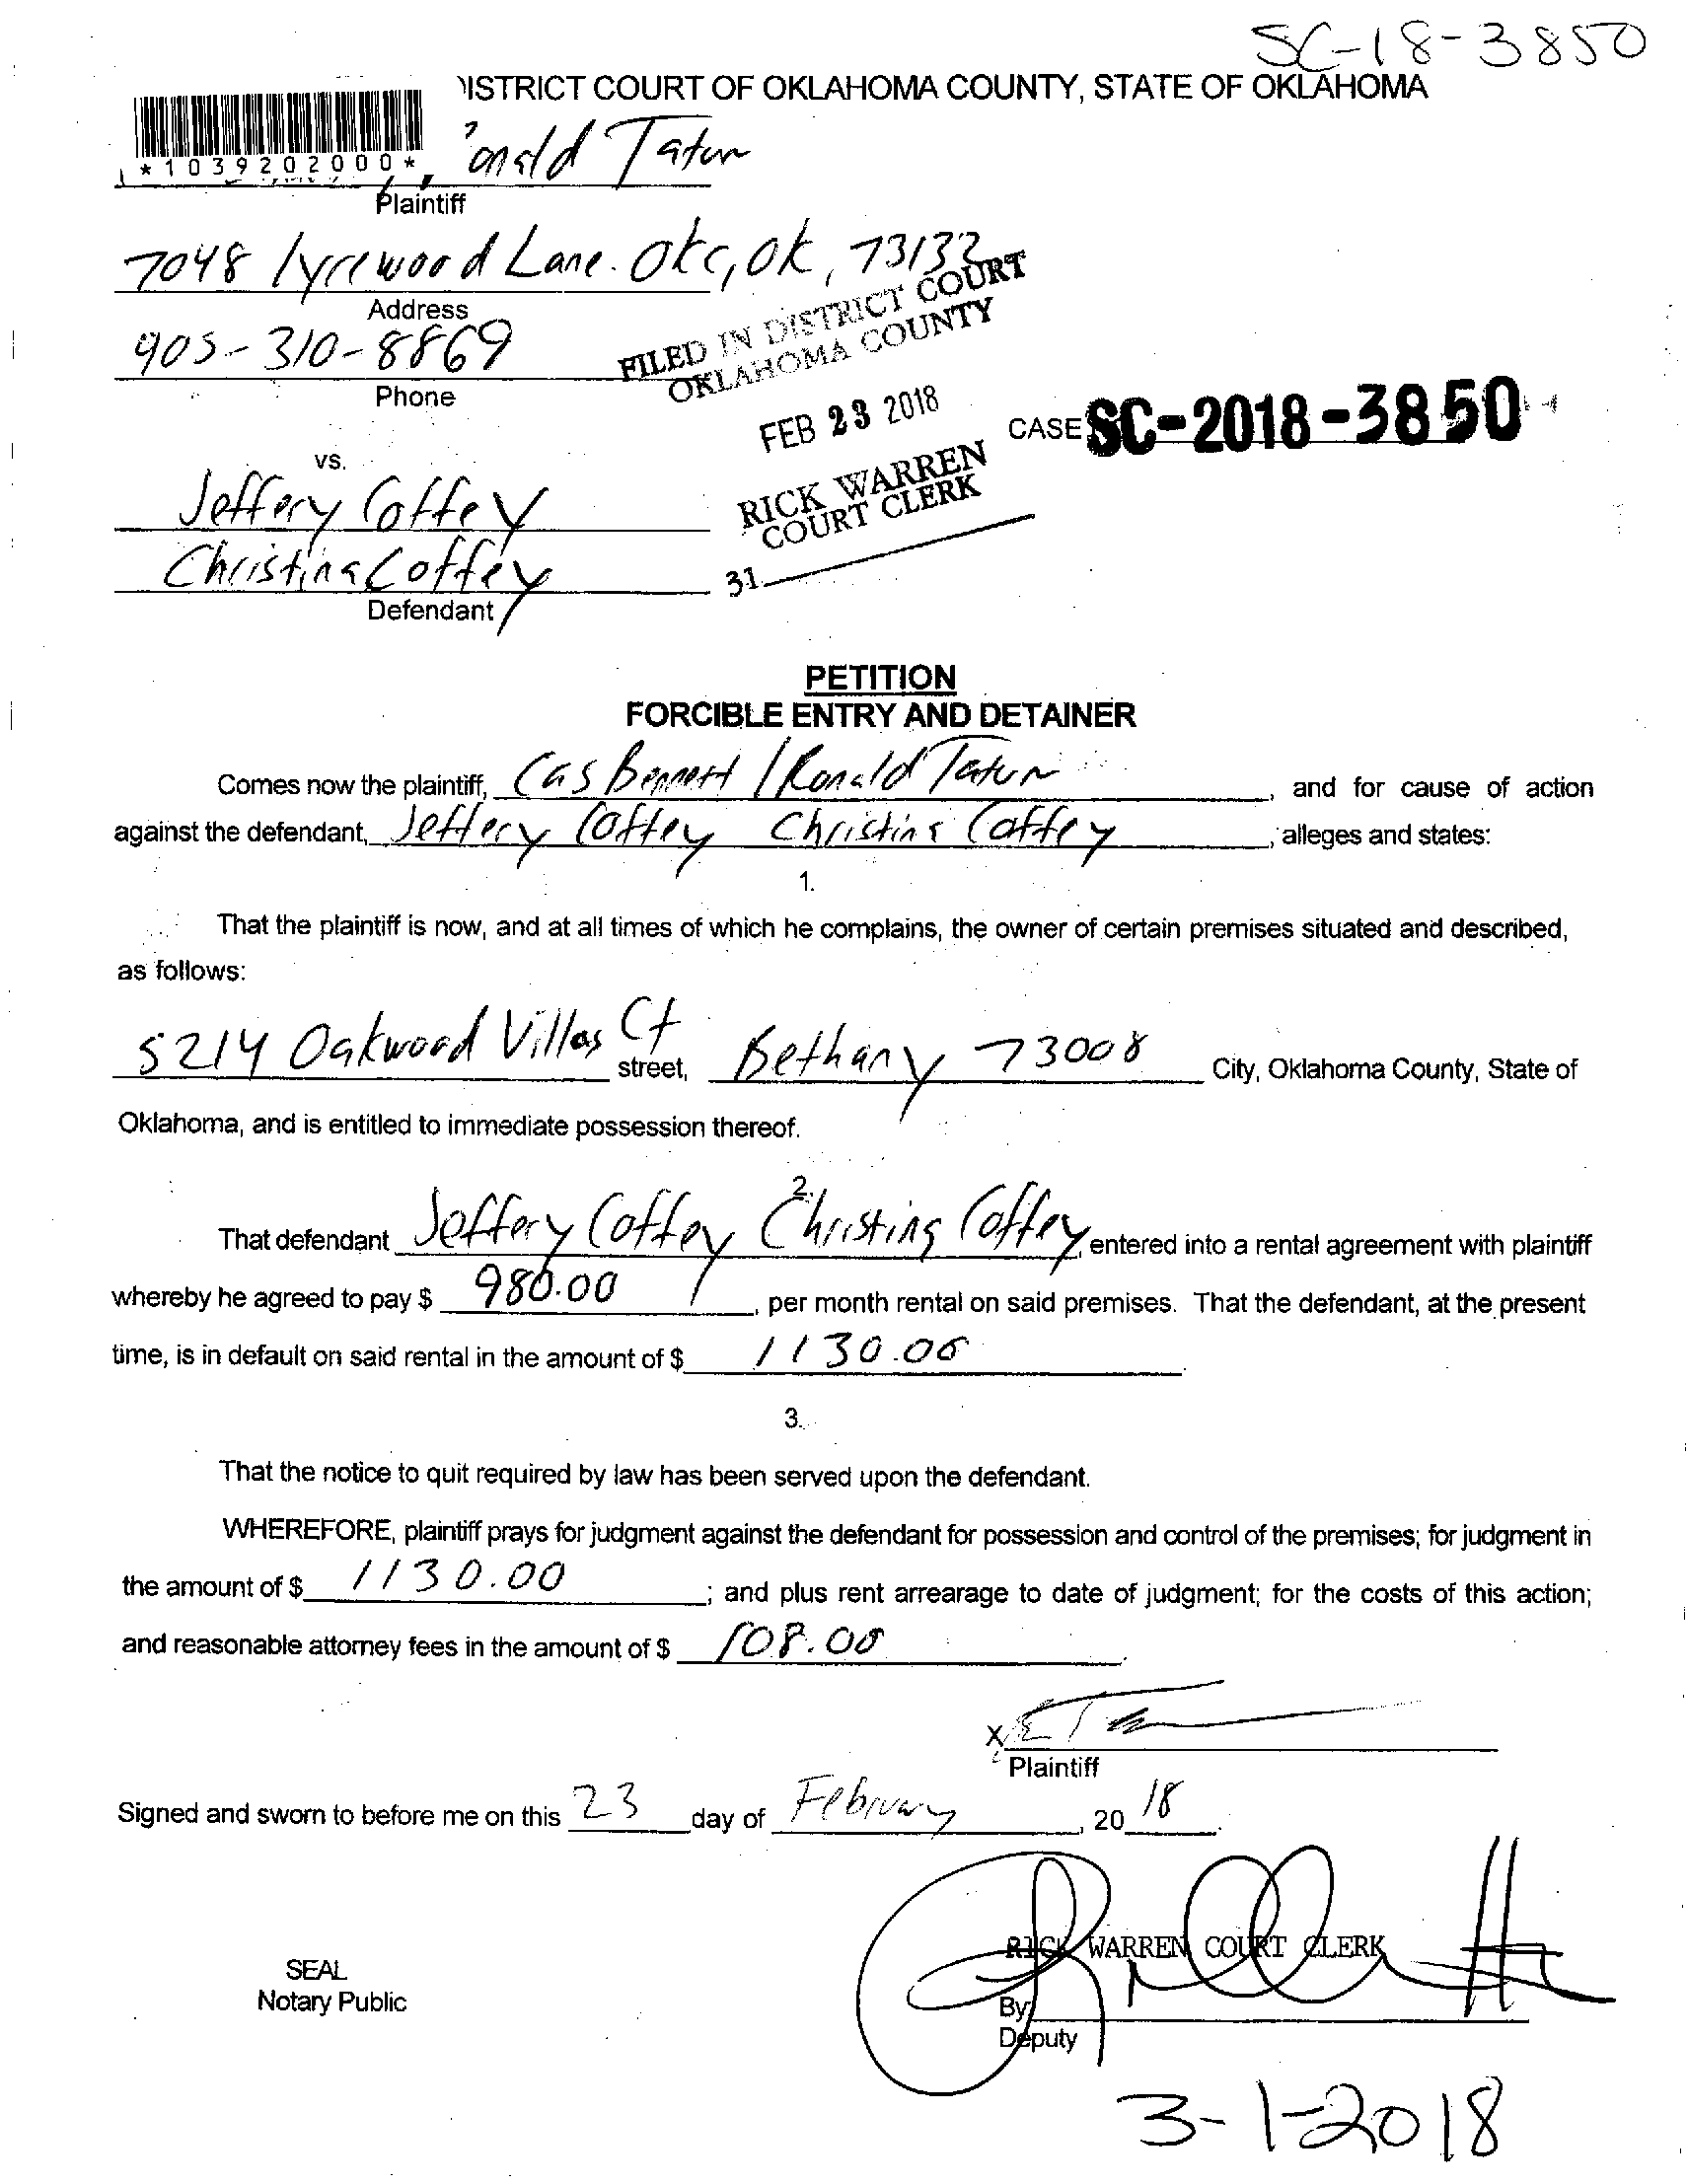 SC-18-3850
DISTRICT COURT OF OKLAHOMA COUNTY, STATE OF OKLAHOMA
*1039202000*
onald Tatum
Plaintiff
7048 lyrewood Lane. OKC, OK, 73132
Address
405-310-8869
Phone
FILED IN DISTRICT COURT
OKLAHOMA COUNTY
FEB 23 2018
RICK WARREN
COURT CLERK
31
CASE SC-2018-3850
vs.
Jeffery Coffey
Christina Coffey
Defendant
PETITION
FORCIBLE ENTRY AND DETAINER
Comes now the plaintiff, Cas Bennett / Ronald Tatum, and for cause of action
against the defendant, Jeffery Coffey Christina Coffey, alleges and states:
1.
That the plaintiff is now, and at all times of which he complains, the owner of certain premises situated and described,
as follows:
5214 Oakwood Villas Ct street, Bethany 73008 City, Oklahoma County, State of
Oklahoma, and is entitled to immediate possession thereof.
2.
That defendant Jeffery Coffey Christina Coffey, entered into a rental agreement with plaintiff
whereby he agreed to pay $ 980.00, per month rental on said premises. That the defendant, at the present
time, is in default on said rental in the amount of $ 1130.00.
3.
That the notice to quit required by law has been served upon the defendant.
WHEREFORE, plaintiff prays for judgment against the defendant for possession and control of the premises; for judgment in
the amount of $ 1130.00; and plus rent arrearage to date of judgment; for the costs of this action;
and reasonable attorney fees in the amount of $ 108.00.
X
Plaintiff
Signed and sworn to before me on this 23 day of February, 20 18.
RICK WARREN COURT CLERK
SEAL
Notary Public
By
Deputy
3-1-2018